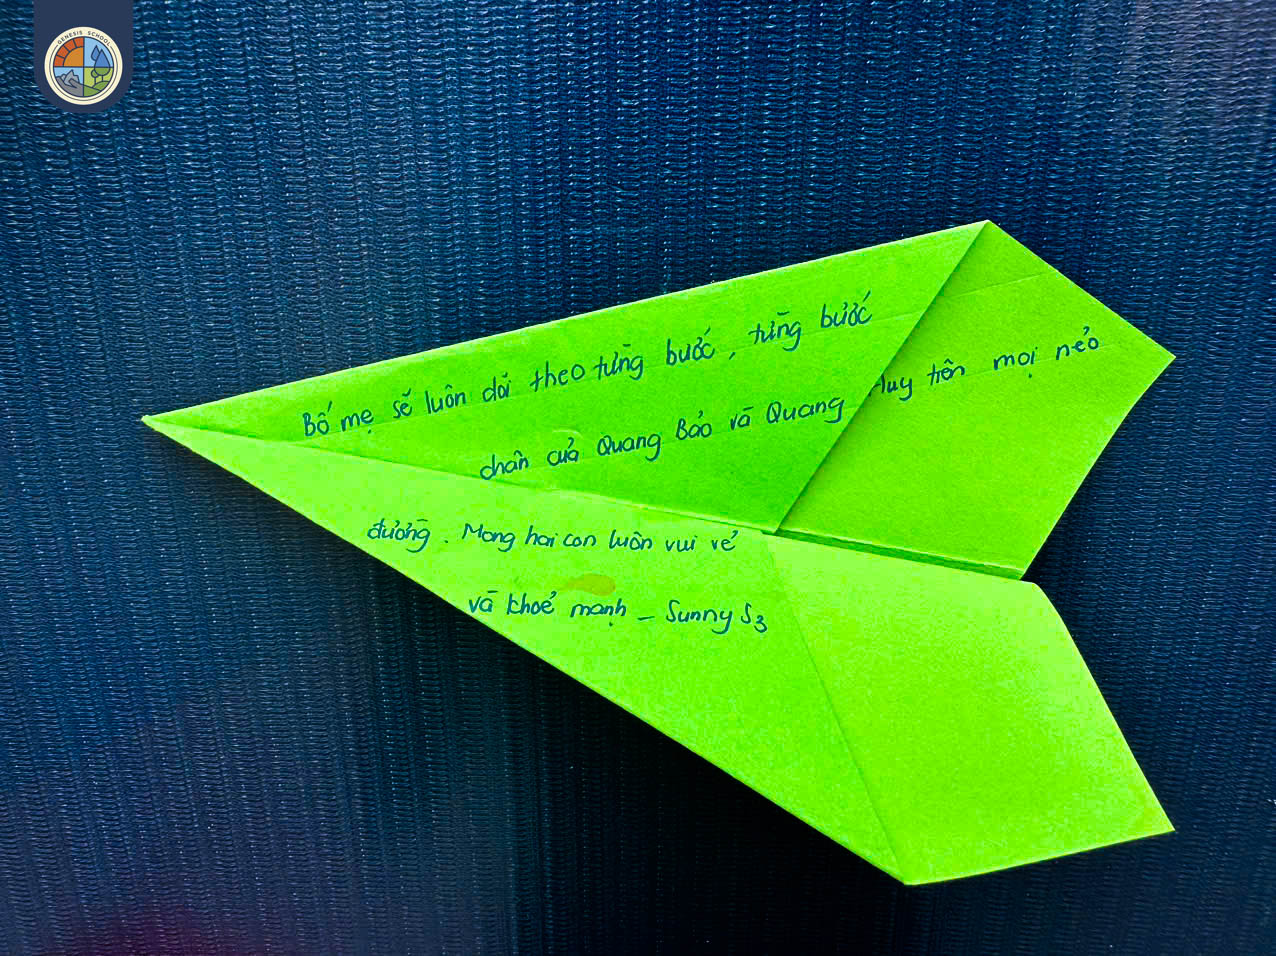 GENESIS SCHOOL
Bố mẹ sẽ luôn dõi theo từng bước, từng bước
chân của Quang Bảo và Quang Huy trên mọi nẻo
đường. Mong hai con luôn vui vẻ
và khoẻ mạnh - Sunny S3